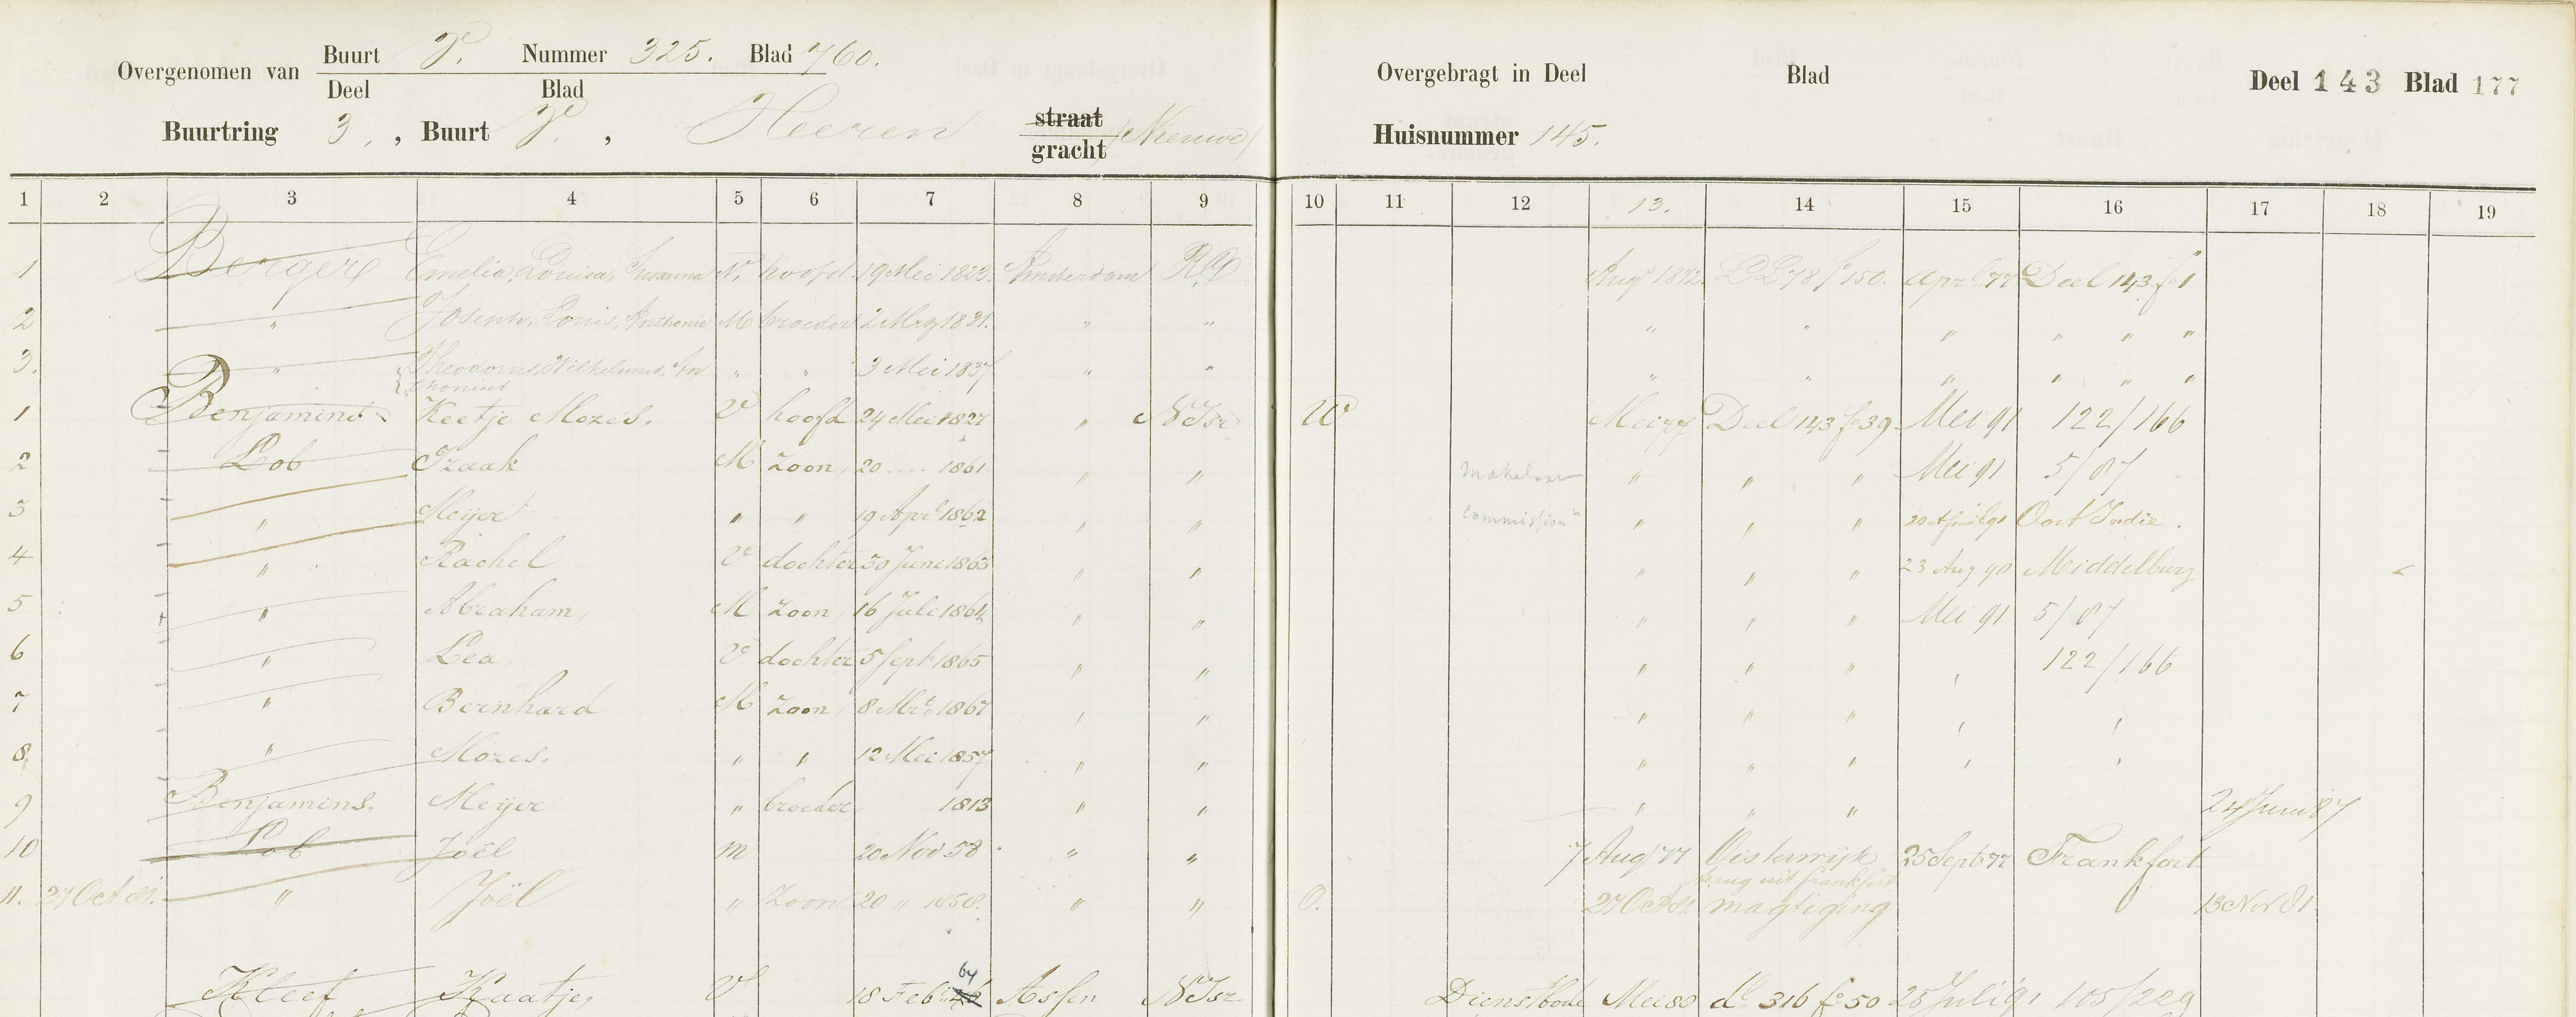 Overgenomen van Buurt Nummer 325. Blad 760.
Deel Blad
Buurtring 3, Buurt , Heeren straat gracht (Nieuwe)
Overgebragt in Deel Blad Deel 143 Blad 177
Huisnummer 145.
1 2 3 4 5 6 7 8 9 10 11 12 13. 14 15 16 17 18 19
1 Berger Emelia, Louisa, Susanna V. hoofd 19 Mei 1823. Amsterdam RC Augs 1872. 78 fo 150. Apr 77 Deel 143 fo 1
2 " Joseph, Louis, Anthonie M broeder 2 Mrz 1831. " " " " " " " "
3. " Theodorus, Wilhelmus, An " " 3 Mei 1837 " " " " " " " "
thonius
1 Benjamins Keetje Mozes. V hoofd 24 Mei 1827 " NIsr W Mei 77 Deel 143 fo 39 Mei 91 122/166
2 Lob Izaak M zoon, 20 .... 1861 " " makelaar " " " Mei 91 5/87
3 " Meijer " " 19 Apr 1862 " " commission " " " 29 April 90 Oost Indie.
4 " Rachel V dochter 30 Juni 1863 " " " " " 23 Aug 90 Middelburg
5 " Abraham, M zoon, 16 Juli 1864 " " " " " Mei 91 5/87
6 " Lea V dochter 5 Sept 1865 " " " " " " 122/166
7 " Bernhard M zoon, 8 Mrt 1867 " " " " " " "
8 " Mozes. " " 12 Mei 1857 " " " " " " "
9 Benjamins. Meijer " broeder 1813 " " " " " 24 Juni 87
10 Lob Joël m 20 Nov 58 " " 7 Aug 77 Oisterwijk 25 Sept 77 Frankfort
terug uit Frankfort
11. 27 Oct 81. " Joël " Zoon 20 " 1858. " " O. 27 Oct 81. magtiging 13 Nov 81.
64
Kleef Kaatje, V 18 Feb Assen NIsr Dienstbode Mei 80 dl 316 fo 50 28 Juli 91 105/229